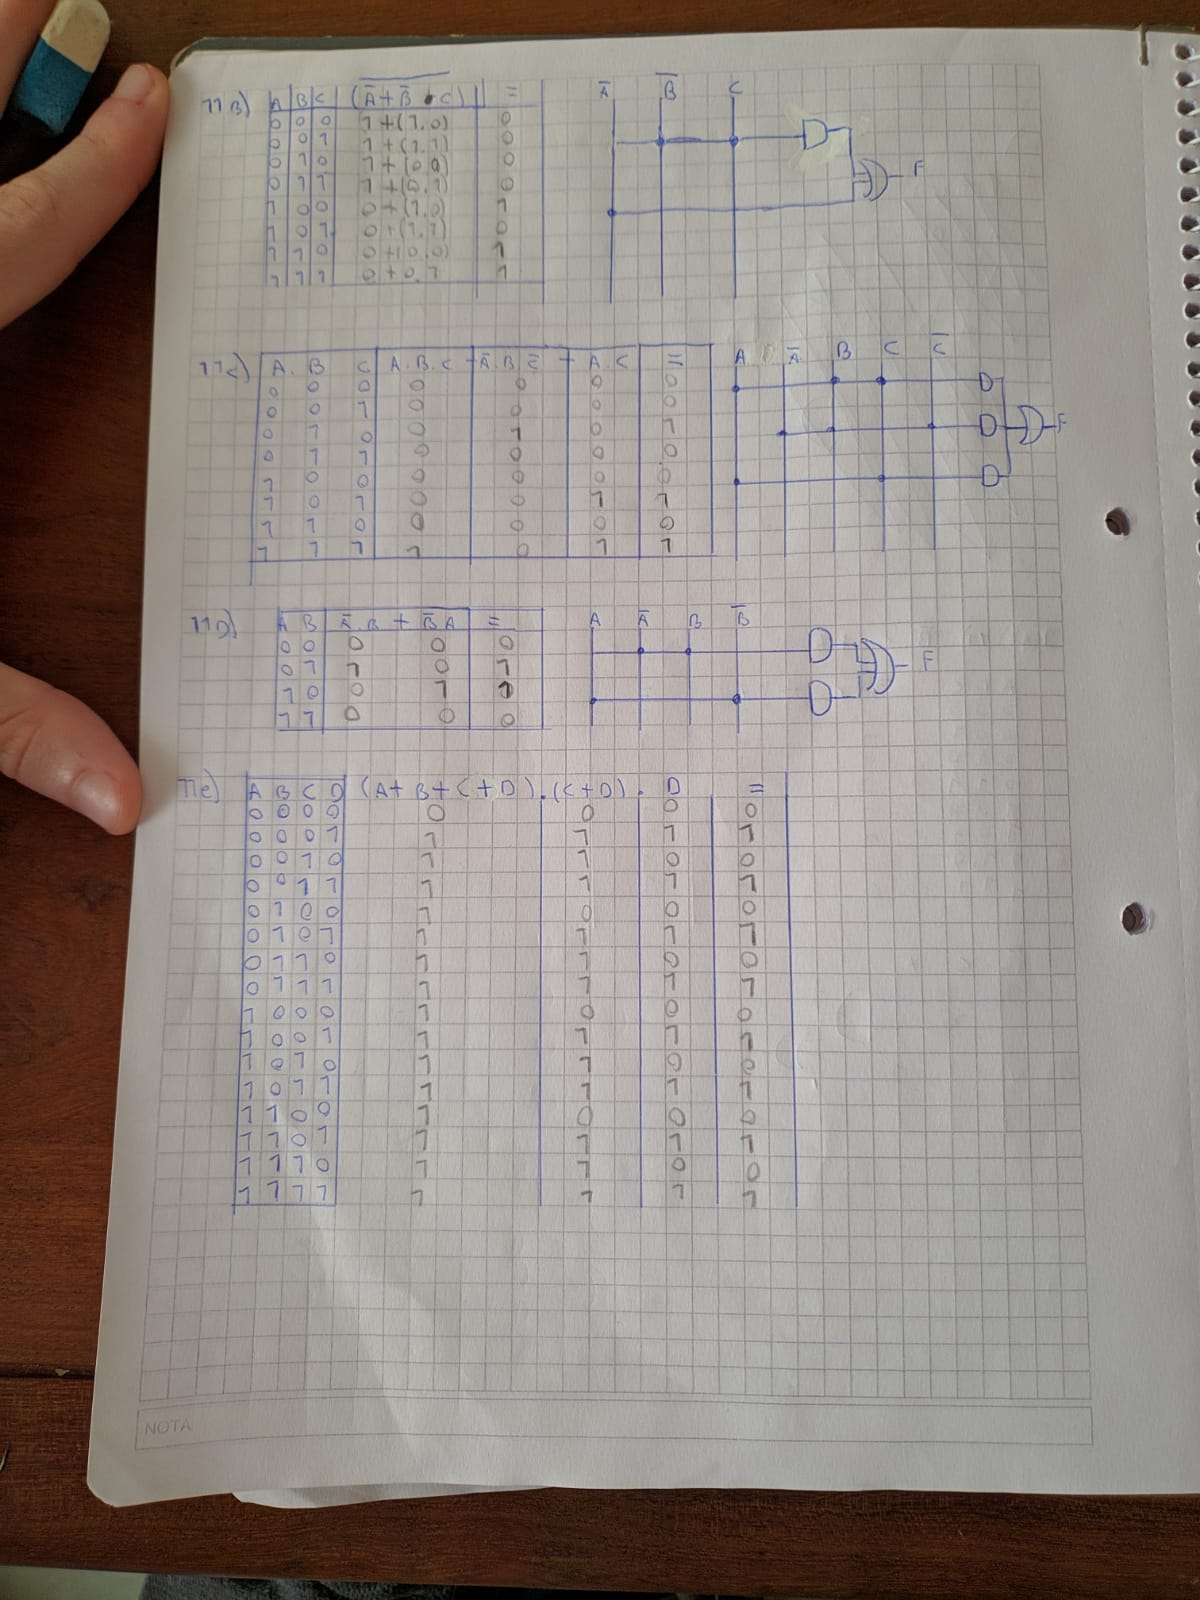 11B) A B C (A̅+B̅•C) =
0 0 0 1+(1.0) 0
0 0 1 1+(1.1) 0
0 1 0 1+(0.0) 0
0 1 1 1+(0.1) 0
1 0 0 0+(1.0) 1
1 0 1 0+(1.1) 0
1 1 0 0+(0.0) 1
1 1 1 0+0.1 1
A̅ B̅ C
F
11c) A. B C A.B.C + A̅.B.C̅ + A.C =
0 0 0 0 0 0 0
0 0 1 0 0 0 0
0 1 0 0 1 0 1
0 1 1 0 0 0 0
1 0 0 0 0 0 0
1 0 1 0 0 1 1
1 1 0 0 0 0 0
1 1 1 1 0 1 1
A A̅ B C C̅
F
11D) A B A̅.B + B̅A =
0 0 0 0 0
0 1 1 0 1
1 0 0 1 1
1 1 0 0 0
A A̅ B B̅
F
11e) A B C D (A+B+C+D).(C+D). D =
0 0 0 0 0 0 0 0
0 0 0 1 1 1 1 1
0 0 1 0 1 1 0 0
0 0 1 1 1 1 1 1
0 1 0 0 1 0 0 0
0 1 0 1 1 1 1 1
0 1 1 0 1 1 0 0
0 1 1 1 1 1 1 1
1 0 0 0 1 0 0 0
1 0 0 1 1 1 1 1
1 0 1 0 1 1 0 0
1 0 1 1 1 1 1 1
1 1 0 0 1 0 0 0
1 1 0 1 1 1 1 1
1 1 1 0 1 1 0 0
1 1 1 1 1 1 1 1
NOTA